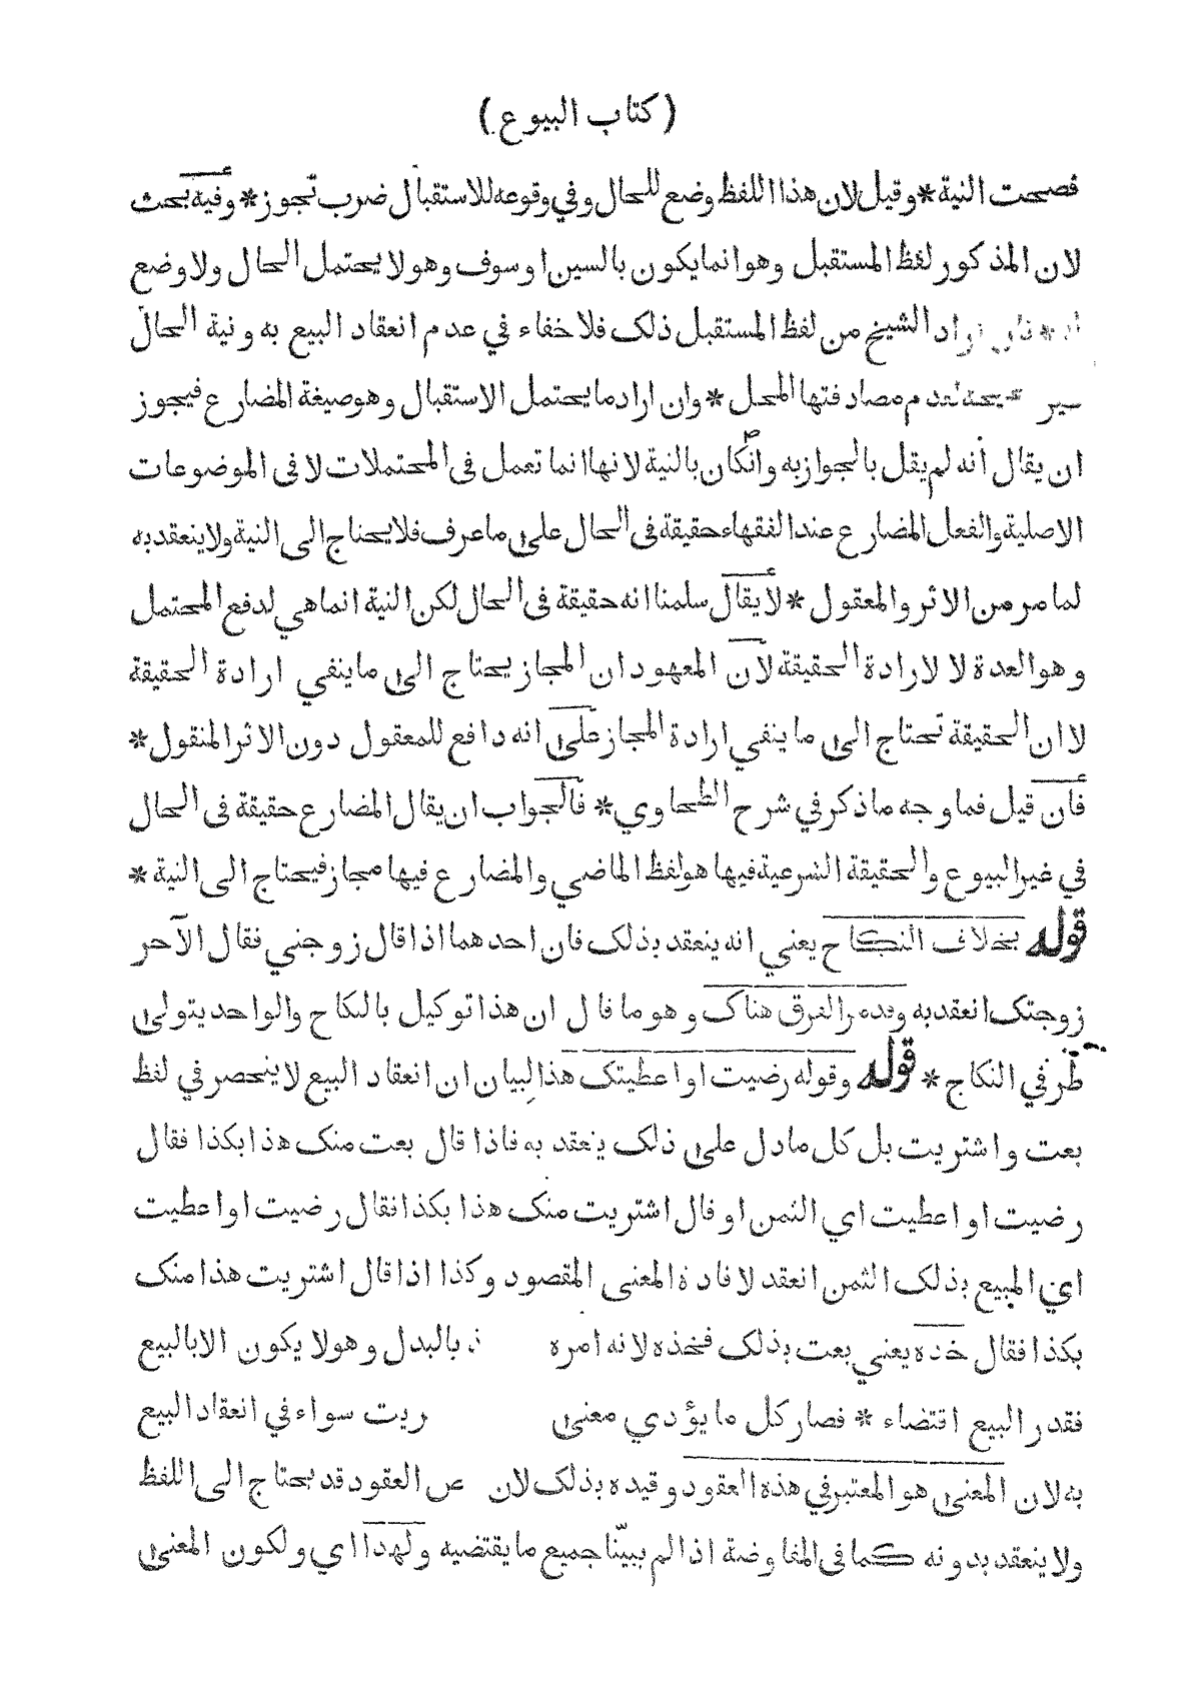 (كتاب البيوع)
فصحت النية * وقيل لان هذا اللفظ وضع للحال وفي وقوعه للاستقبال ضرب تجوز * وفيه بحث
لان المذكور لفظ المستقبل وهو انما يكون بالسين او سوف وهو لا يحتمل الحال ولا وضع
الشيخ من لفظ المستقبل ذلك فلا خفاء في عدم انعقاد البيع به ونية الحال
لعدم مصادفتها المحل * وان اراد ما يحتمل الاستقبال وهو صيغة المضارع فيجوز
ان يقال أنه لم يقل بالجواز به وانكان بالنية لانها انما تعمل فى المحتملات لا فى الموضوعات
الاصلية والفعل المضارع عند الفقهاء حقيقة فى الحال على ما عرف فلا يحتاج الى النية ولا ينعقد به
لما مر من الاثر والمعقول * لا يقال سلمنا انه حقيقة فى الحال لكن النية انما هي لدفع المحتمل
وهو العدة لا لارادة الحقيقة لأن المعهود ان المجاز يحتاج الى ما ينفي ارادة الحقيقة
لا ان الحقيقة تحتاج الى ما ينفي ارادة المجاز على انه دافع للمعقول دون الاثر المنقول *
فأن قيل فما وجه ما ذكر في شرح الطحاوي * فالجواب ان يقال المضارع حقيقة فى الحال
في غير البيوع والحقيقة الشرعية فيها هو لفظ الماضي والمضارع فيها مجاز فيحتاج الى النية *
قوله بخلاف النكاح يعني انه ينعقد بذلك فان احدهما اذا قال زوجني فقال الآخر
زوجتك انعقد به وقد مر الفرق هناك وهو ما قال ان هذا توكيل بالنكاح والواحد يتولى
في النكاح * قوله وقوله رضيت او اعطيتك هذا لبيان ان انعقاد البيع لا ينحصر في لفظ
بعت واشتريت بل كل ما دل على ذلك ينعقد به فاذا قال بعت منك هذا بكذا فقال
رضيت او اعطيت اي الثمن او قال اشتريت منك هذا بكذا فقال رضيت او اعطيت
اي المبيع بذلك الثمن انعقد لافادة المعنى المقصود وكذا اذا قال اشتريت هذا منك
بكذا فقال خذه يعني بعت بذلك فخذه لانه امره بالبدل وهو لا يكون الا بالبيع
فقدر البيع اقتضاء * فصار كل ما يؤدي معنى سواء في انعقاد البيع
به لان المعنى هو المعتبر في هذه العقود وقيده بذلك لان العقود قد يحتاج الى اللفظ
ولا ينعقد بدونه كما فى المفاوضة اذا لم يبينا جميع ما يقتضيه ولهذا اي ولكون المعنى